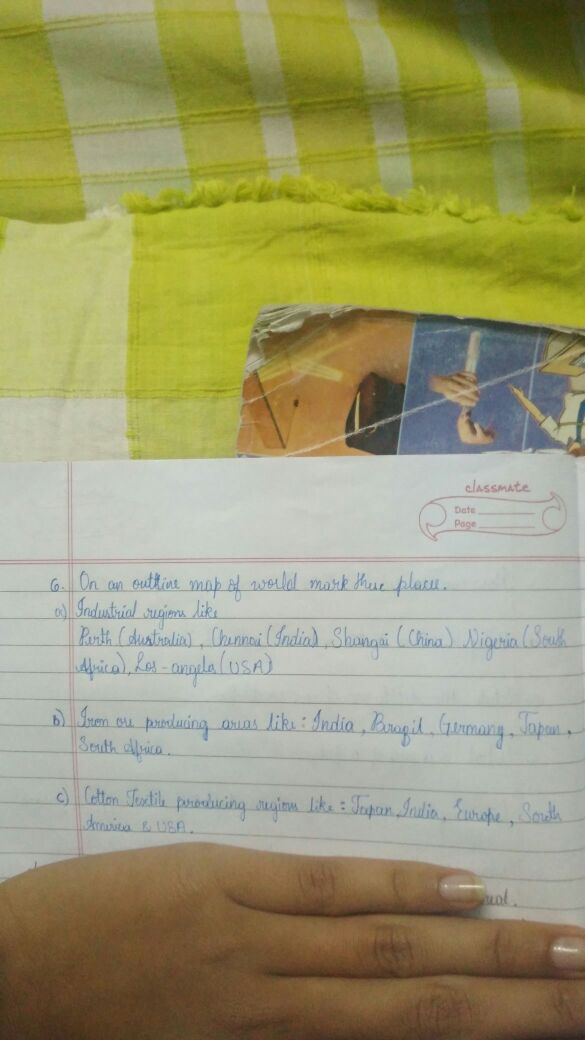 classmate
Date
Page
6. On an outline map of world mark these places.
a) Industrial regions like
Perth (Australia), Chennai (India), Shangai (China) Nigeria (South
Africa), Los-angela (USA)
b) Iron ore producing areas like : India, Brazil, Germany, Japan,
South Africa.
c) Cotton Textile peroducing regions like : Japan, India, Europe, South
America & USA.